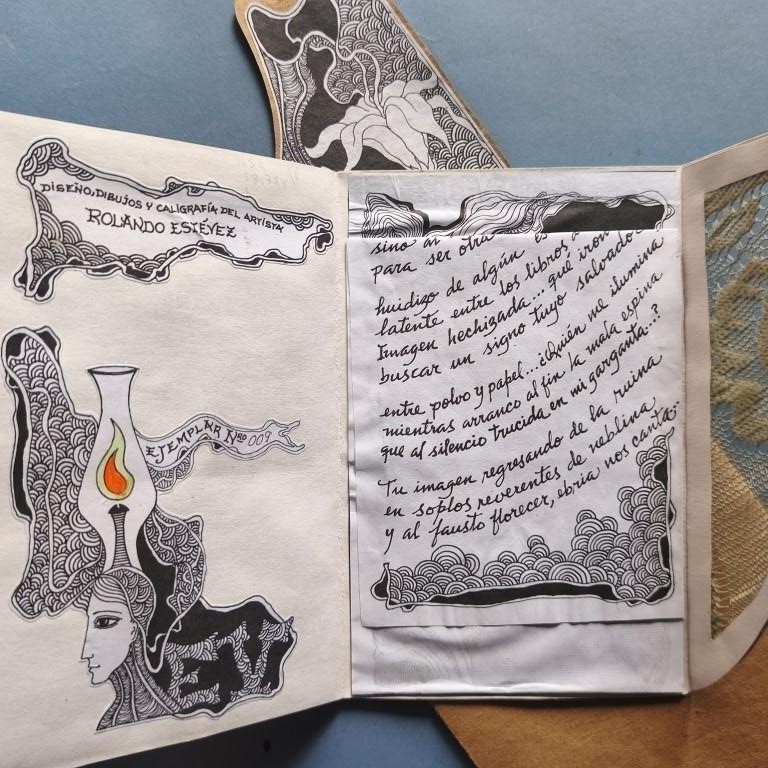 DISEÑO, DIBUJOS Y CALIGRAFÍA DEL ARTISTA
ROLANDO ESTÉVEZ
EJEMPLAR Nro 009
EV
sino al
para ser otra
huidizo de algún es
latente entre los libros a
Imagen hechizada... qué iron
buscar un signo tuyo salvador
entre polvo y papel... ¿Quién me ilumina
mientras arranco al fin la mala espina
que al silencio trucida en mi garganta...?
Tu imagen regresando de la ruina
en soplos reverentes de neblina
y al fausto florecer, ebria nos canta...